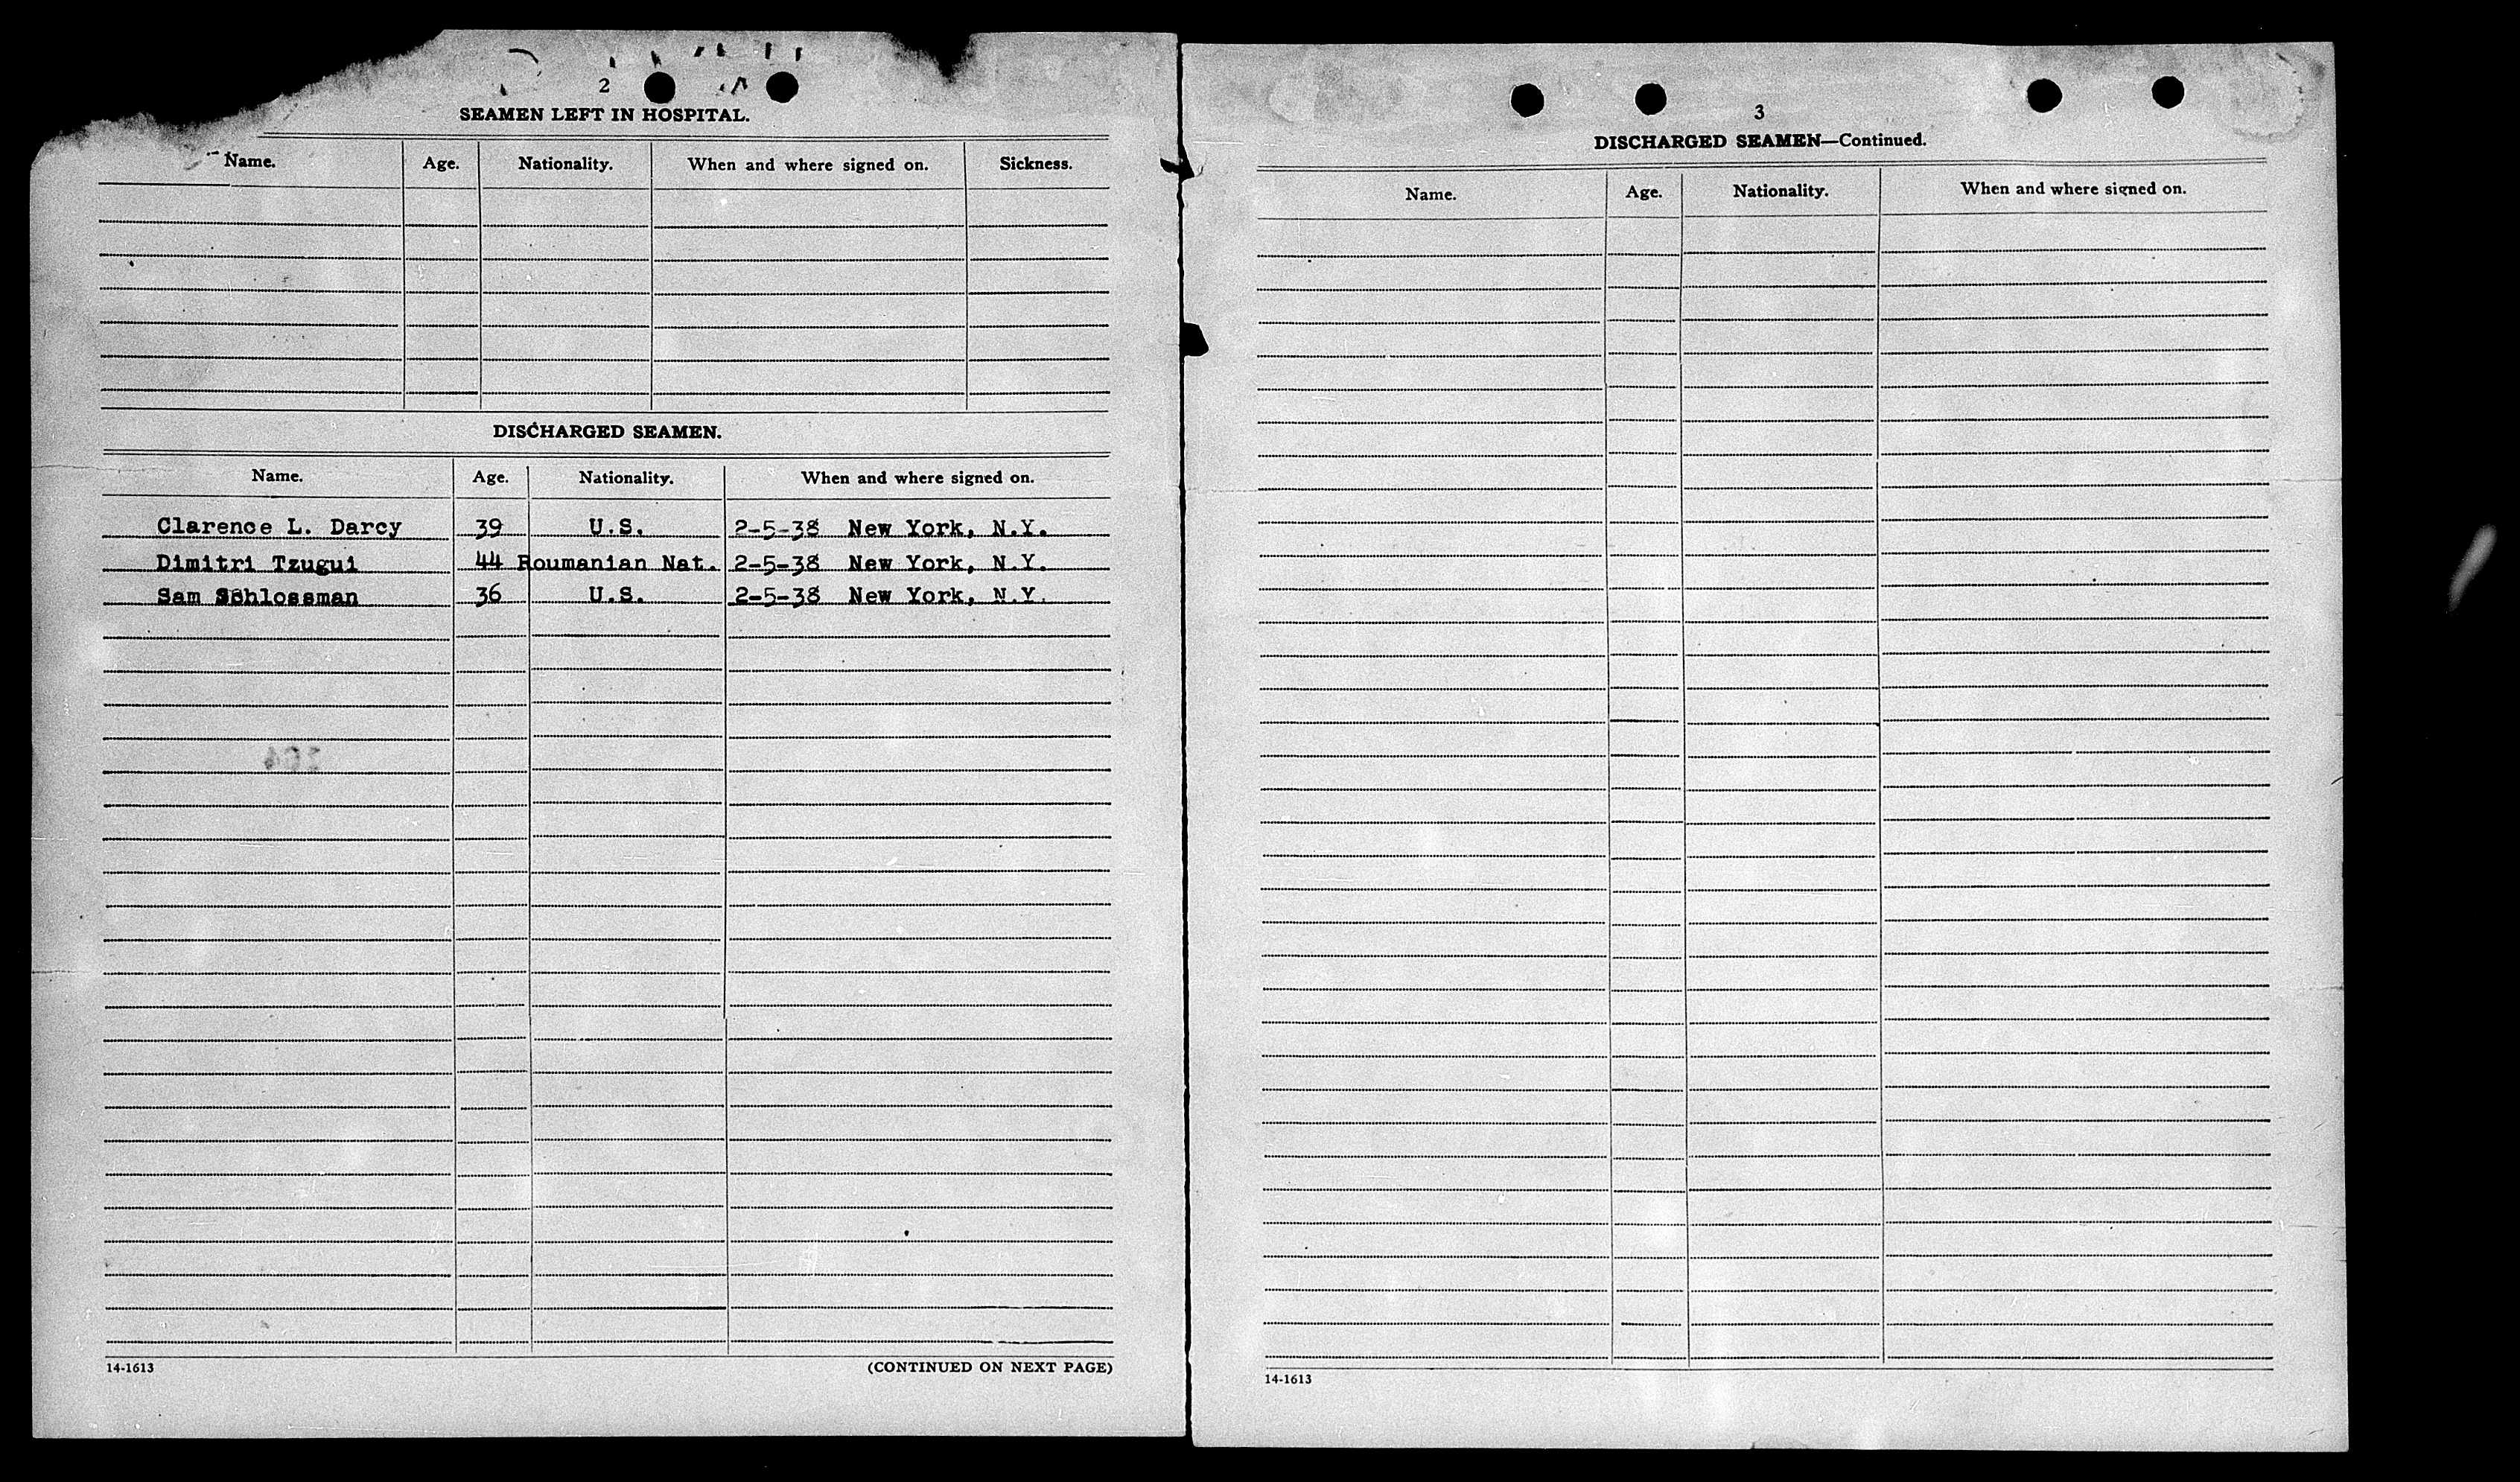 2
SEAMEN LEFT IN HOSPITAL.
Name. Age. Nationality. When and where signed on. Sickness.
DISCHARGED SEAMEN.
Name. Age. Nationality. When and where signed on.
Clarence L. Darcy 39 U.S. 2-5-38 New York, N.Y.
Dimitri Tzugui 44 Roumanian Nat. 2-5-38 New York, N.Y.
Sam Schlossman 36 U.S. 2-5-38 New York, N.Y.
14-1613 (CONTINUED ON NEXT PAGE)
3
DISCHARGED SEAMEN—Continued.
Name. Age. Nationality. When and where signed on.
14-1613